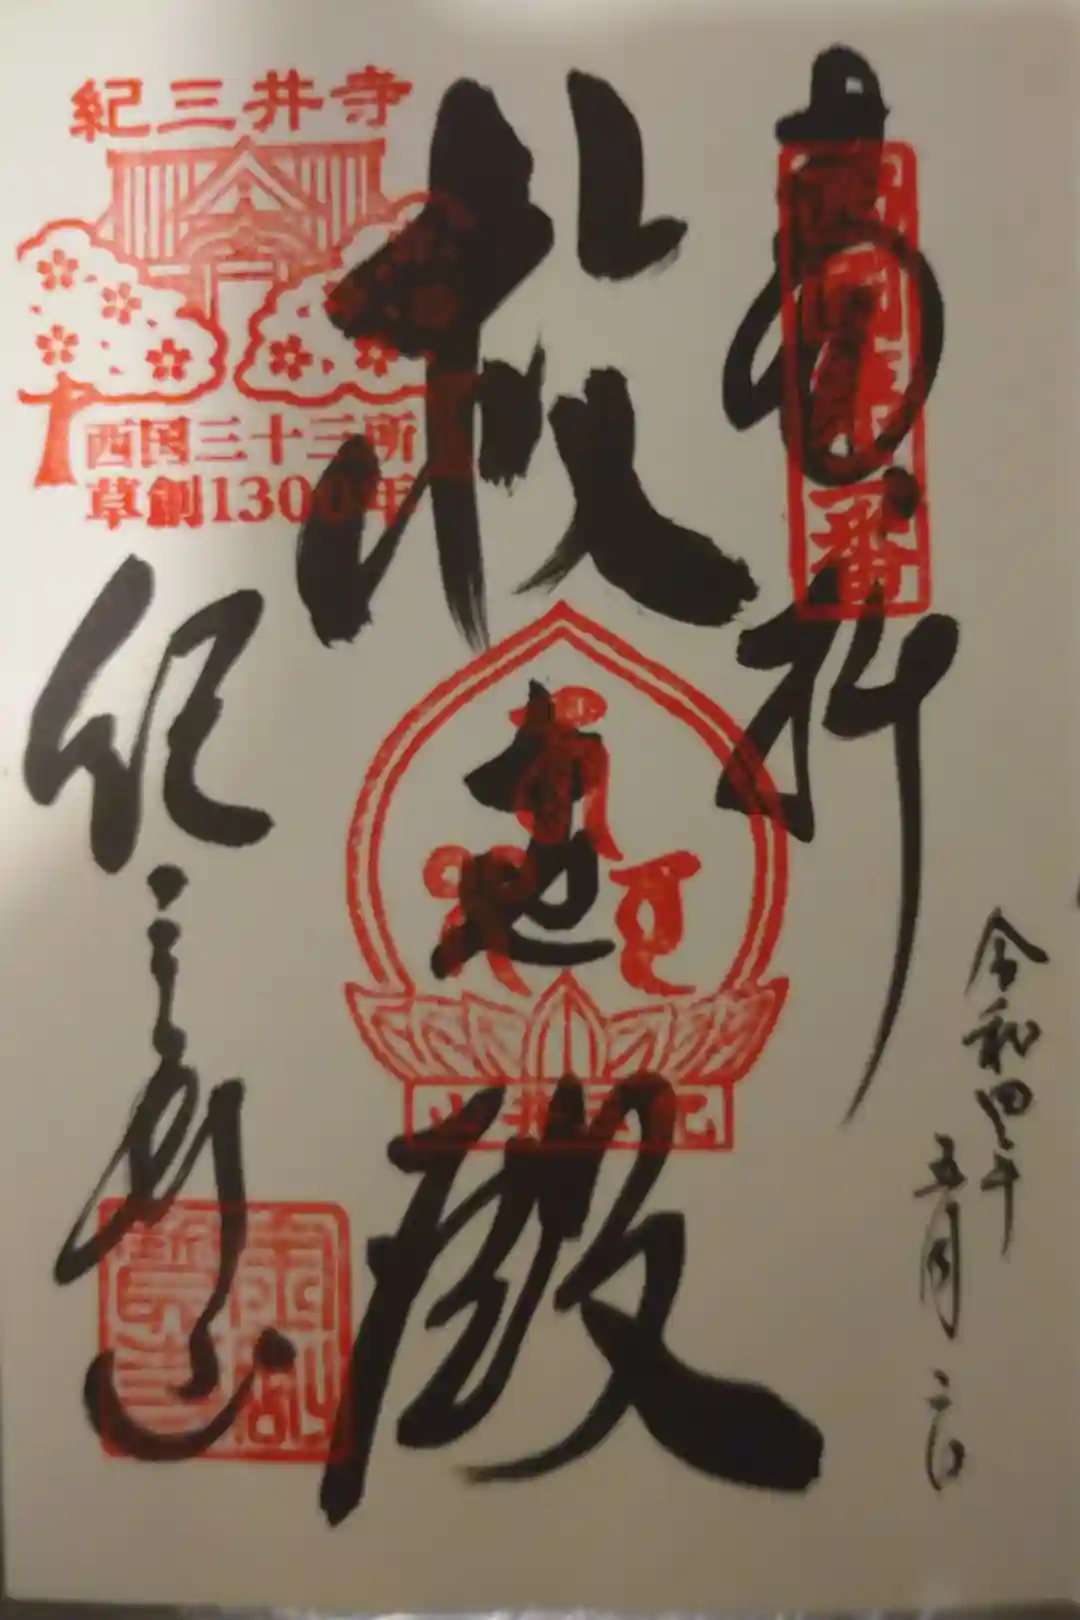 奉拝
西国第二番
令和四年
五月二日
救世殿
紀三井山
紀三井寺
西国三十三所
草創1300年
紀三井寺